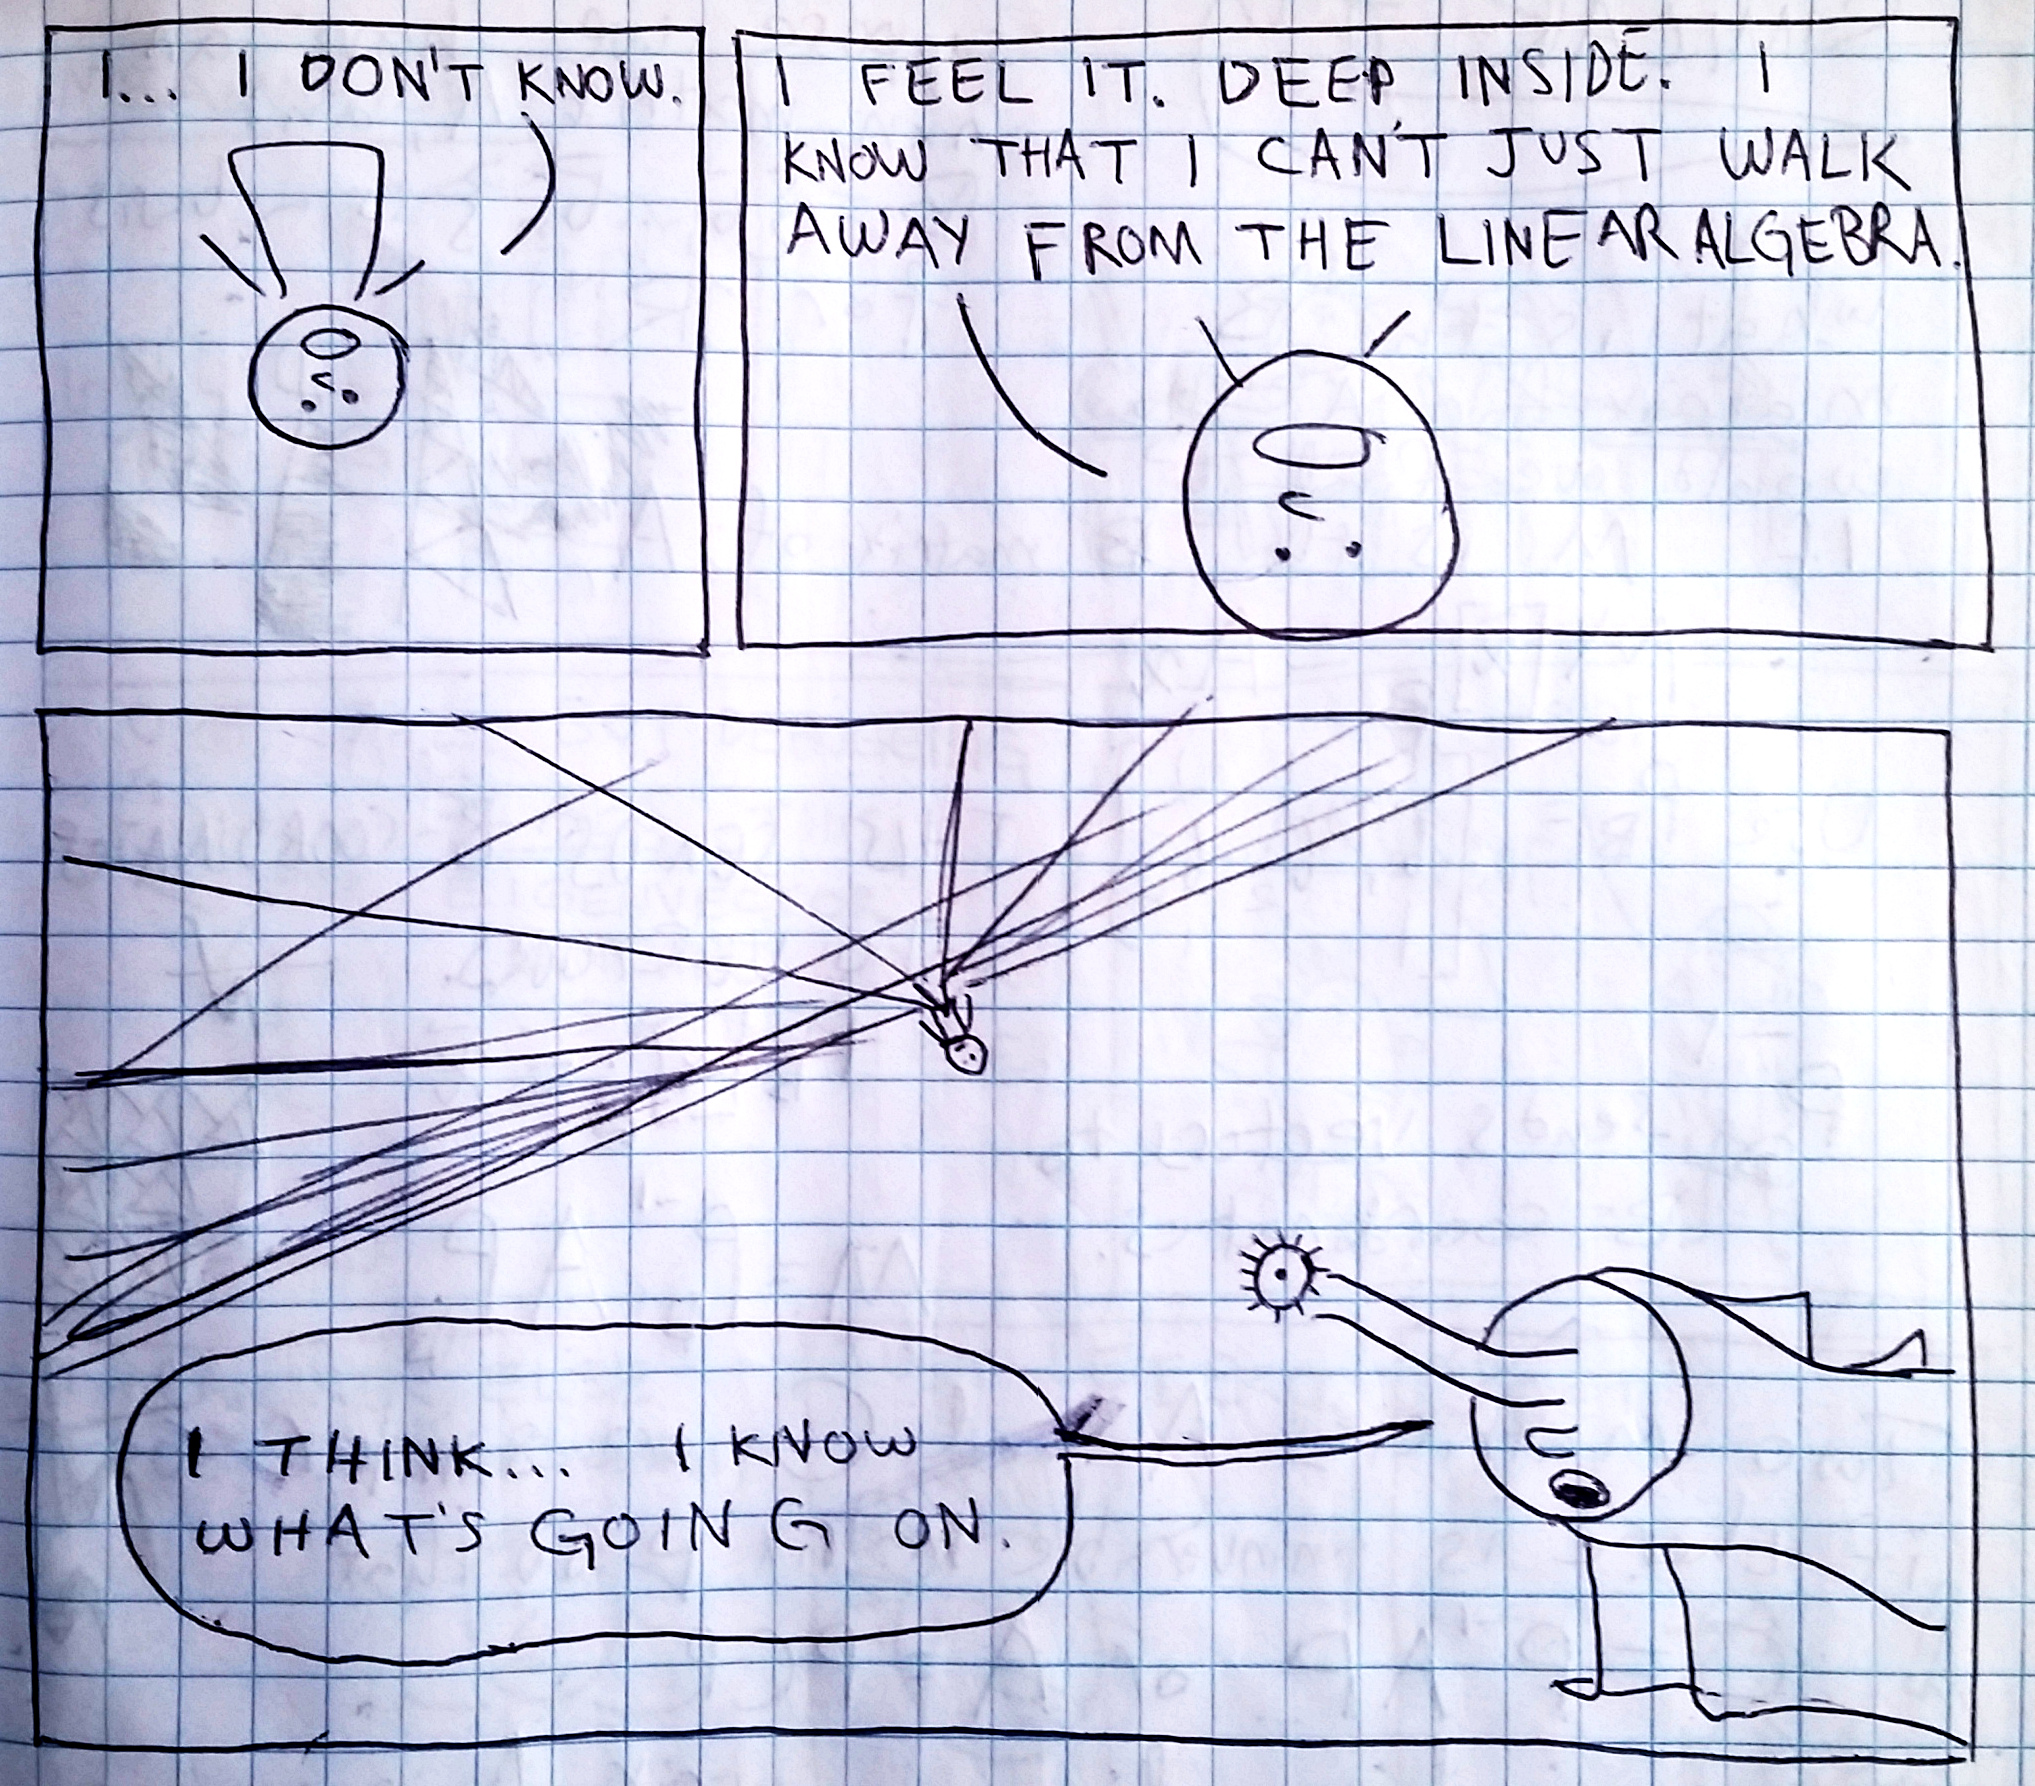 I... I DON'T KNOW.
I FEEL IT. DEEP INSIDE. I
KNOW THAT I CAN'T JUST WALK
AWAY FROM THE LINEAR ALGEBRA.
I THINK... I KNOW
WHAT'S GOING ON.